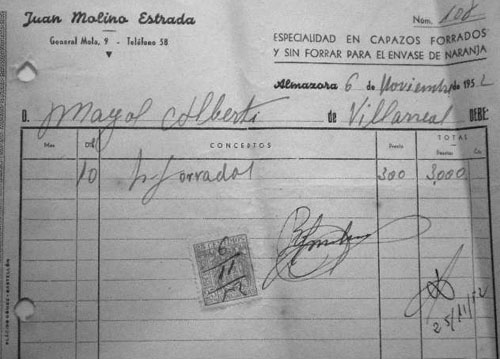 Juan Molino Estrada
General Mola, 9 - Teléfono 58
Núm. 108
ESPECIALIDAD EN CAPAZOS FORRADOS
Y SIN FORRAR PARA EL ENVASE DE NARANJA
Almazora 6 de Noviembre de 1952
D. Mayol Alberti de Villarreal DEBE:
Mes Día CONCEPTOS Precio TOTAL
Pesetas Cts.
10 forrados 300 3,000
6/11/52
25/11/52